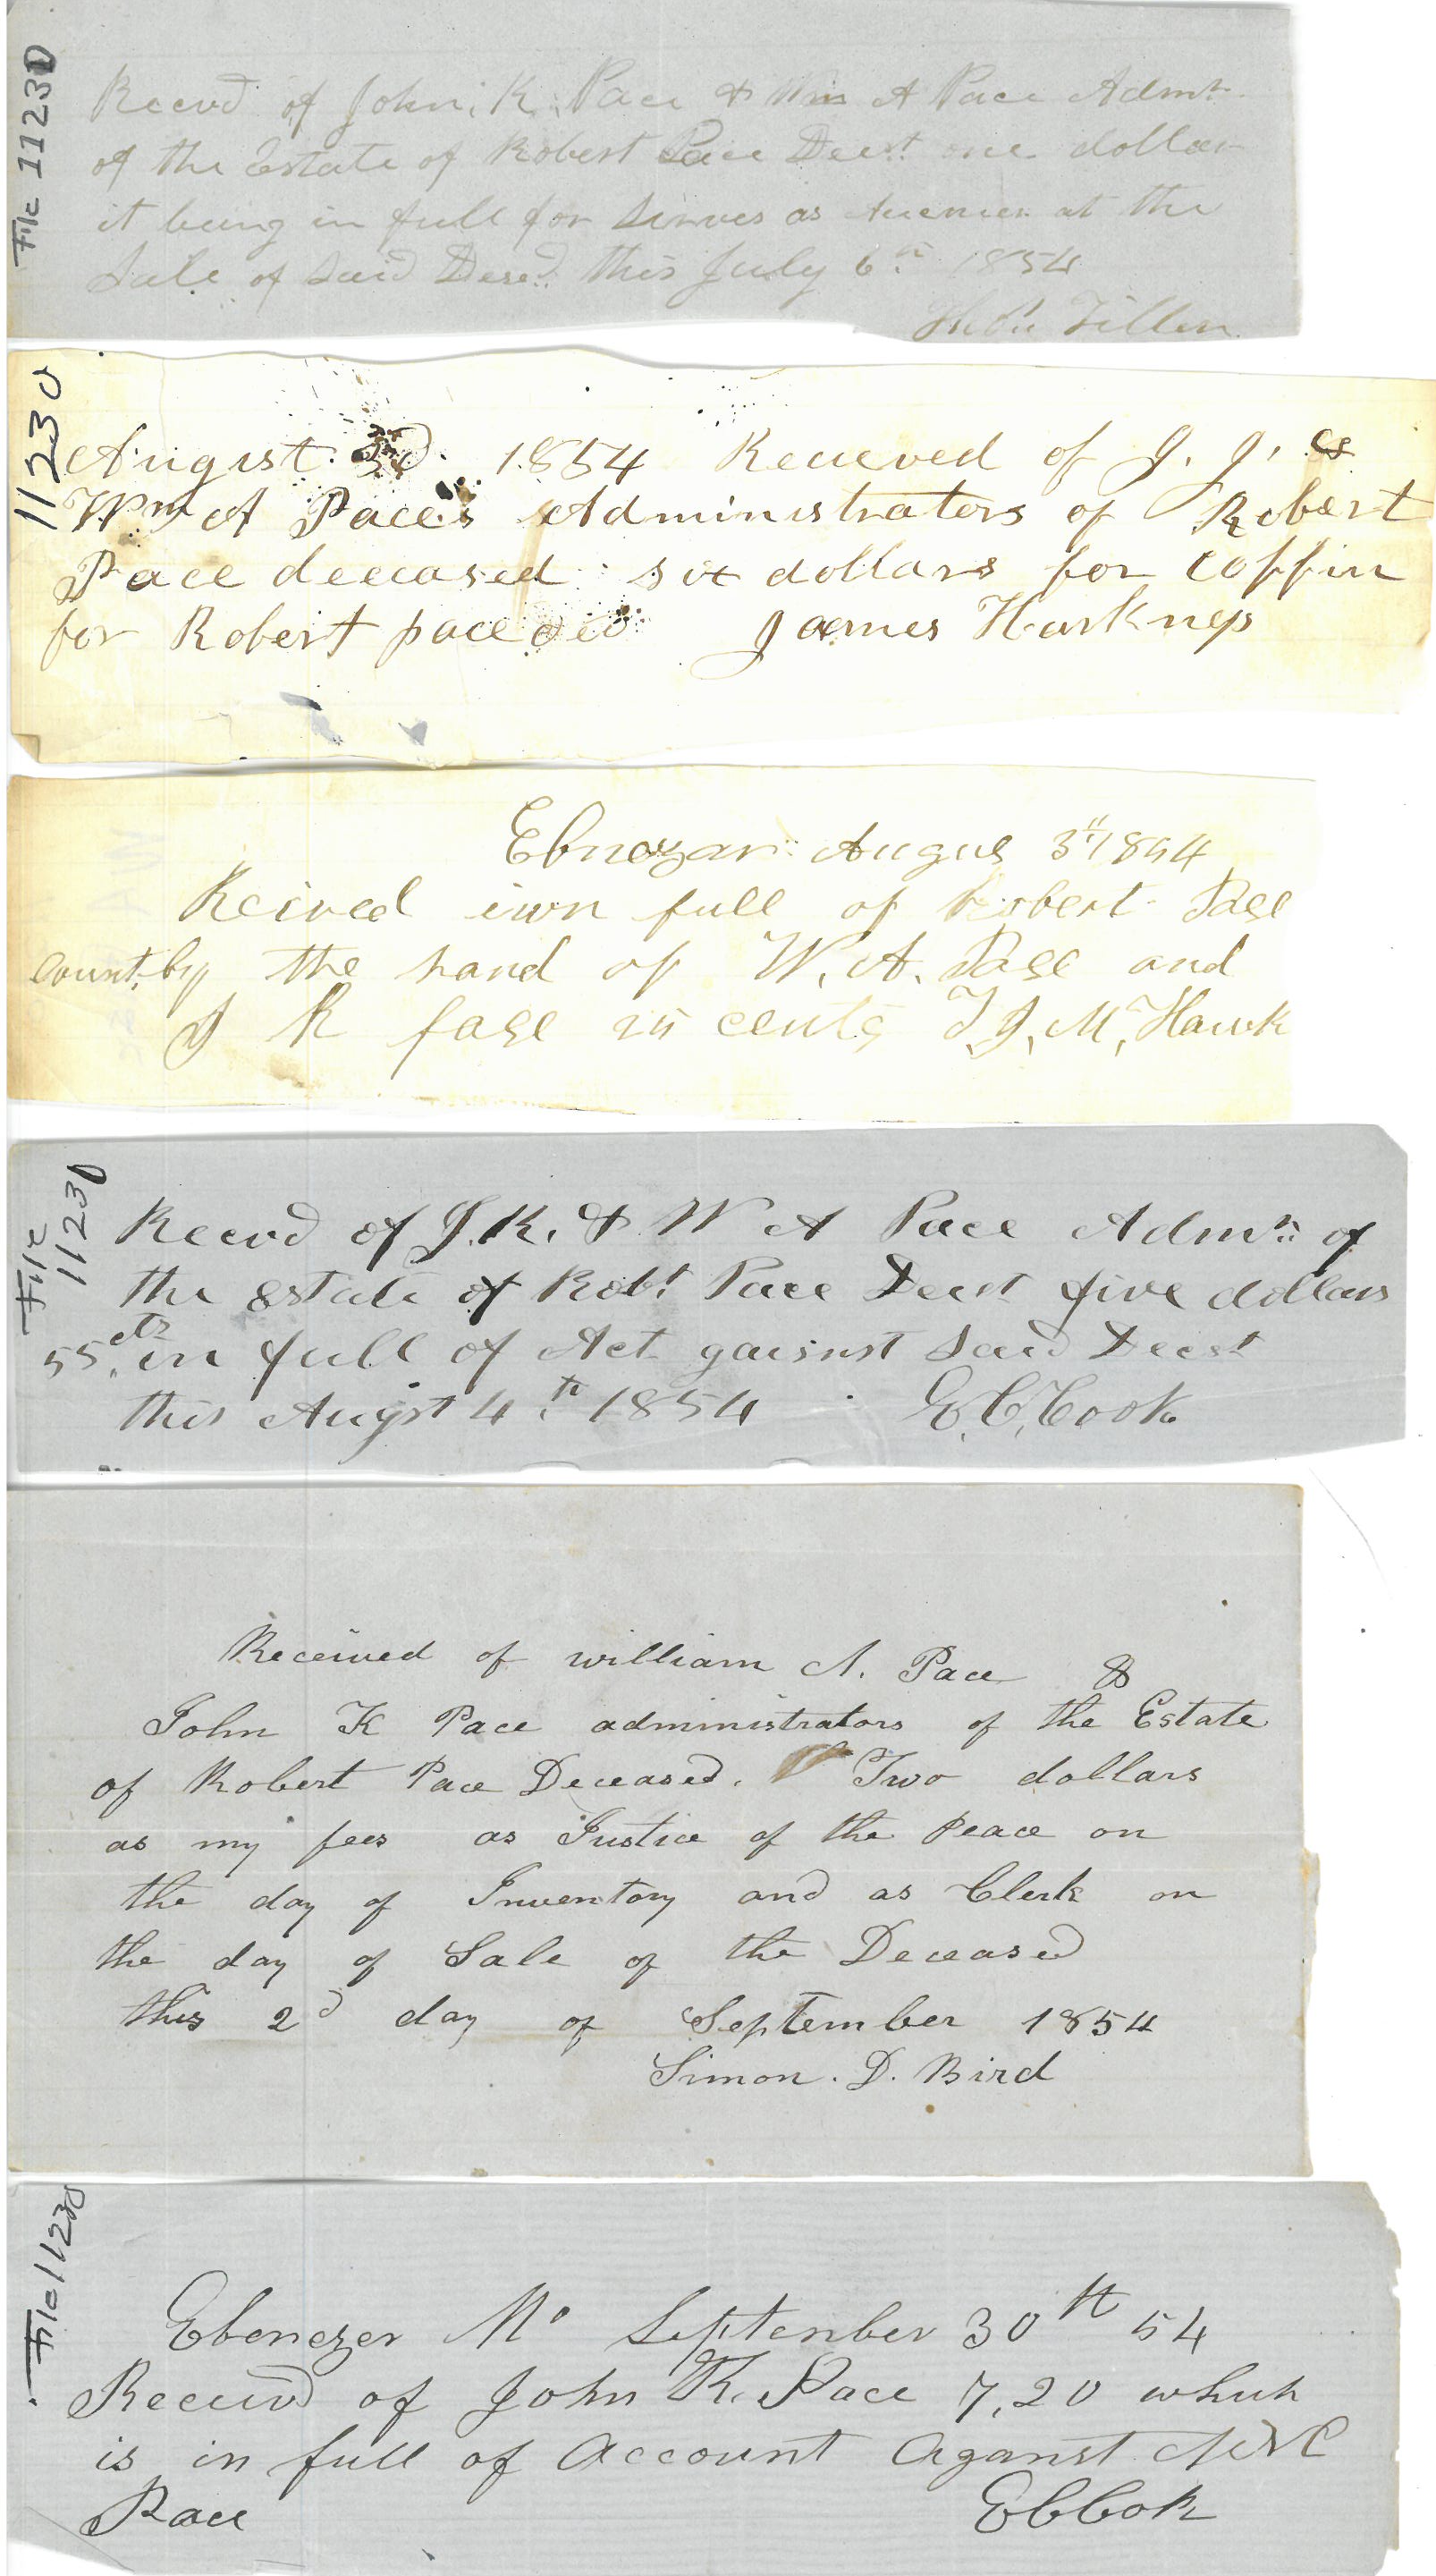 File 11230
Recevd of John, K, Pace & Wm A Pace Admr
of the Estate of Robert Pace Decst one dollar
it being in full for at the
Sale of Said Desed this July 6th 1854
Tillen
11230
August 3d 1854 Receved of J. J. &
Wm A Paces Administrators of Robert
Pace deceased six dollars for coffin
for Robert pace ded James Harkness
Ebnezar August 3d 1854
Reived in full of Robert Pace
count, by the hand of W. A. Pace and
J K pace 25 cents T, J, McHawk
File 11230
Recevd of J. K. & W A Pace Admrs of
the estate of Robt Pace Decst five dollars
55 cts in full of Act gainst Said Decst
this Augst 4th 1854 E, C, Cook
Received of william A. Pace &
John K Pace administrators of the Estate
of Robert Pace Deceased. Two dollars
as my fees as Justice of the Peace on
the day of Inventory and as Clerk on
the day of Sale of the Deceased
this 2d day of September 1854
Simon. D. Bird
File 11230
Ebenezer Mo September 30th 54
Received of John K. Pace 7,20 which
is in full of Account Aganst
Pace E C Cook